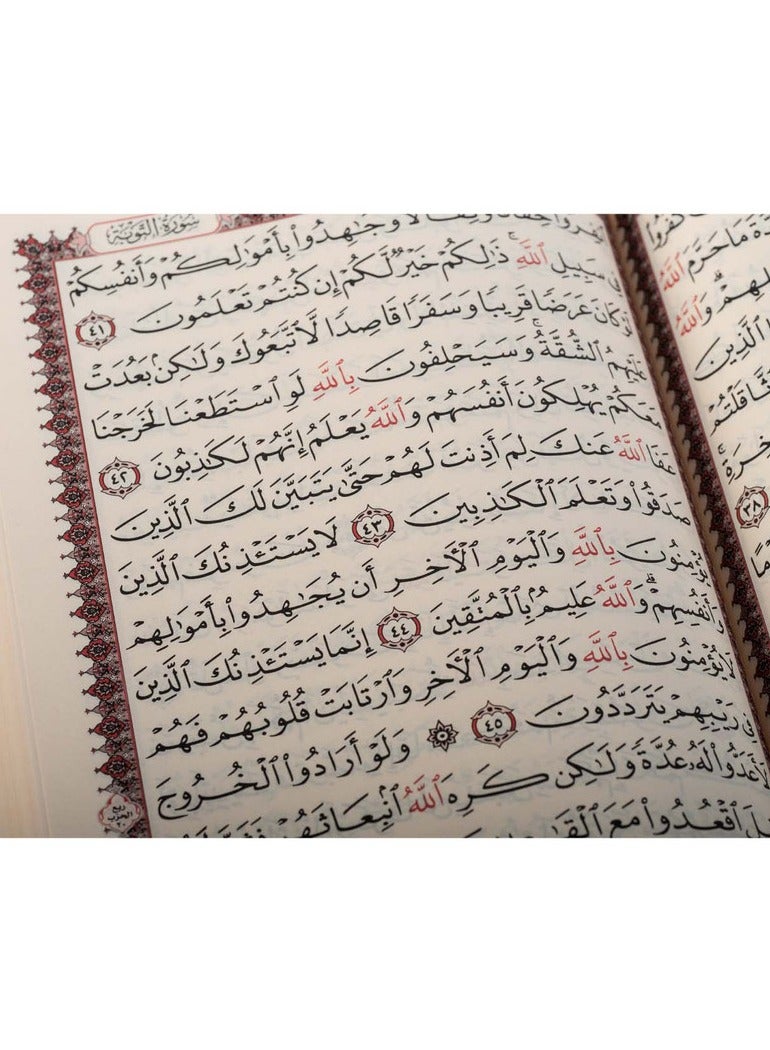 سُورَةُ التَّوْبَةِ
وَجَٰهِدُوا۟ بِأَمْوَٰلِكُمْ وَأَنفُسِكُمْ
فِى سَبِيلِ ٱللَّهِ ۚ ذَٰلِكُمْ خَيْرٌ لَّكُمْ إِن كُنتُمْ تَعْلَمُونَ ٤١
كَانَ عَرَضًا قَرِيبًا وَسَفَرًا قَاصِدًا لَّٱتَّبَعُوكَ وَلَٰكِنۢ بَعُدَتْ
ٱلشُّقَّةُ ۚ وَسَيَحْلِفُونَ بِٱللَّهِ لَوِ ٱسْتَطَعْنَا لَخَرَجْنَا
يُهْلِكُونَ أَنفُسَهُمْ وَٱللَّهُ يَعْلَمُ إِنَّهُمْ لَكَٰذِبُونَ ٤٢
عَفَا ٱللَّهُ عَنكَ لِمَ أَذِنتَ لَهُمْ حَتَّىٰ يَتَبَيَّنَ لَكَ ٱلَّذِينَ
صَدَقُوا۟ وَتَعْلَمَ ٱلْكَٰذِبِينَ ٤٣ لَا يَسْتَـْٔذِنُكَ ٱلَّذِينَ
يُؤْمِنُونَ بِٱللَّهِ وَٱلْيَوْمِ ٱلْأَخِرِ أَن يُجَٰهِدُوا۟ بِأَمْوَٰلِهِمْ
وَأَنفُسِهِمْ ۗ وَٱللَّهُ عَلِيمٌۢ بِٱلْمُتَّقِينَ ٤٤ إِنَّمَا يَسْتَـْٔذِنُكَ ٱلَّذِينَ
لَا يُؤْمِنُونَ بِٱللَّهِ وَٱلْيَوْمِ ٱلْأَخِرِ وَٱرْتَابَتْ قُلُوبُهُمْ فَهُمْ
فِى رَيْبِهِمْ يَتَرَدَّدُونَ ٤٥ ۞ وَلَوْ أَرَادُوا۟ ٱلْخُرُوجَ
لَأَعَدُّوا۟ لَهُۥ عُدَّةً وَلَٰكِن كَرِهَ ٱللَّهُ ٱنۢبِعَاثَهُمْ
ٱقْعُدُوا۟ مَعَ
ربع
الحزب
٢٠
مَا حَرَّمَ ٱللَّهُ
وَٱللَّهُ
ٱلَّذِينَ
٣٨